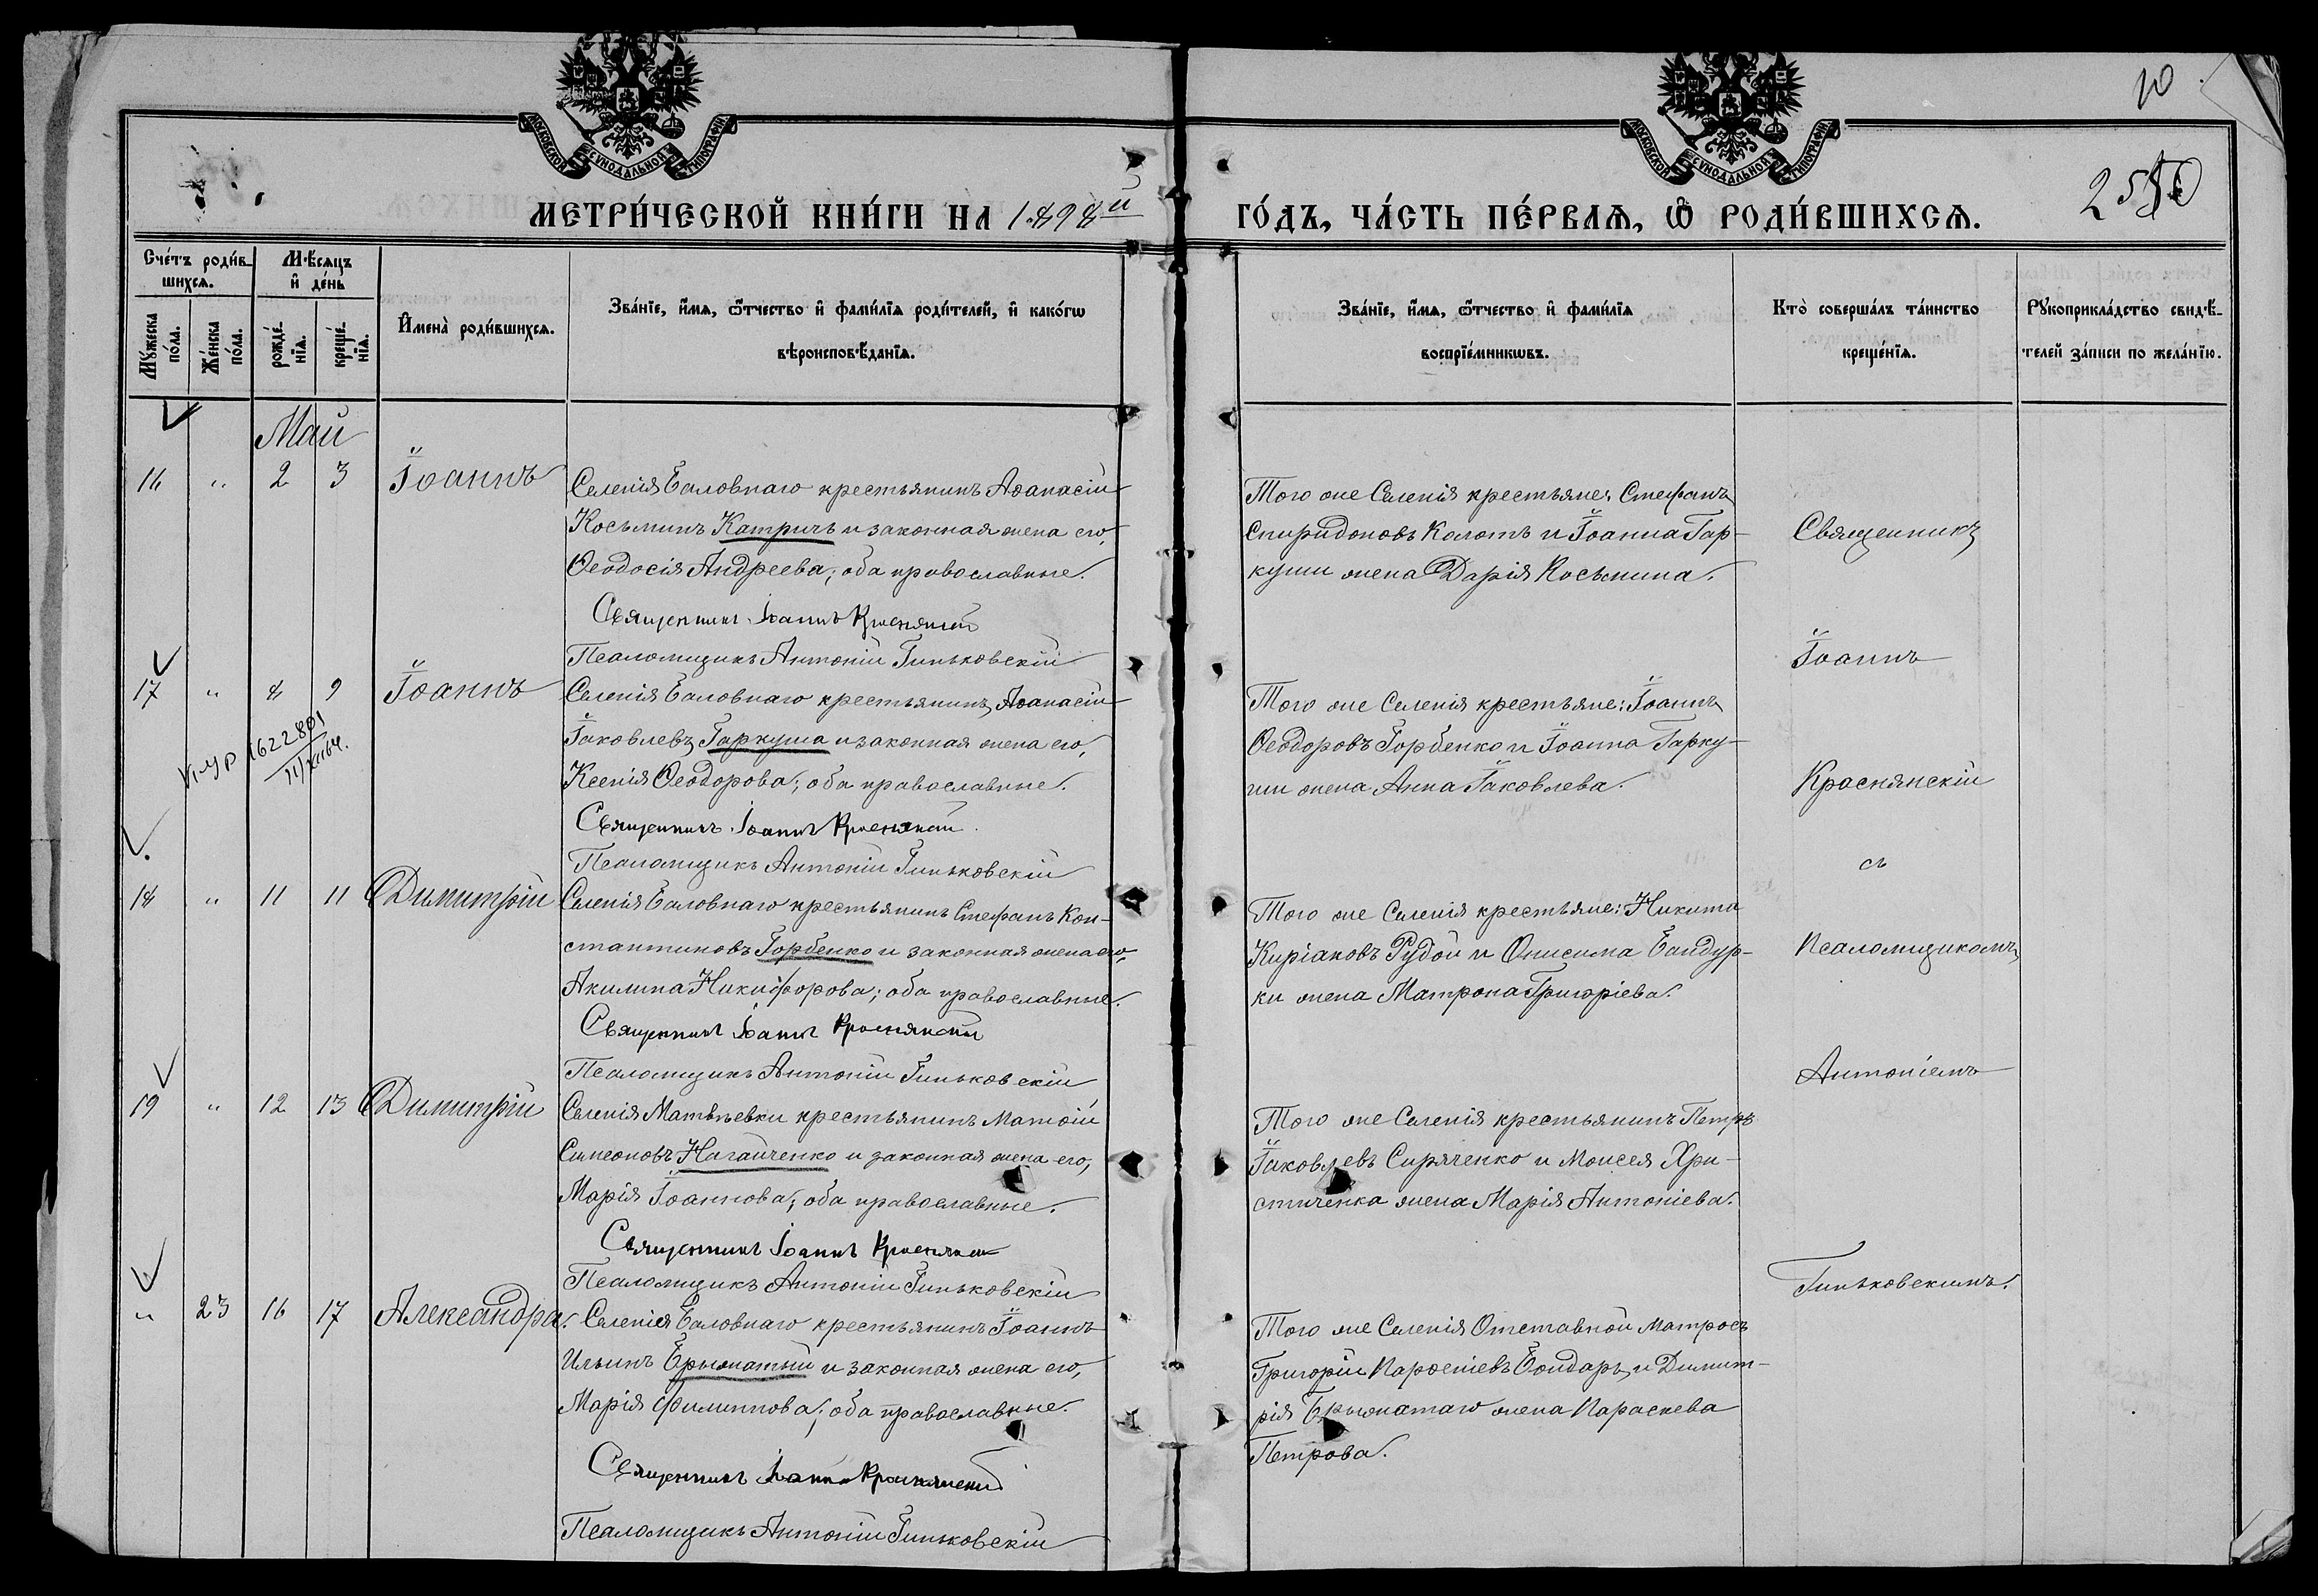 10
МОСКОВСКОЙ СѴНОДАЛЬНОЙ ТИПОГРАФИИ
МОСКОВСКОЙ СѴНОДАЛЬНОЙ ТИПОГРАФИИ
МЕТРИ́ЧЕСКОЙ КНИ́ГИ НА 1898й ГО́ДЪ, ЧА́СТЬ ПЕ́РВАЯ, Ѡ РОДИ́ВШИХСЯ.
Сче́тъ роди́в-
шихся.
Мѣ́сяцъ
и҆ де́нь
Мꙋ́жеска
по́ла.
Же́нска
по́ла.
рожде́-
нїя.
креще́-
нїя.
И҆мена̀ роди́вшихся.
Зва́нїе, и҆́мя, ѻ҆́тчество и҆ фами́лїя роди́телей, и҆ како́гѡ
вѣроисповѣ́данїя.
Зва́нїе, и҆́мя, ѻ҆́тчество и҆ фами́лїя
воспрїе́мникѡвъ.
Кто̀ соверша́лъ та́инство
креще́нїя.
Рꙋкоприкла́дство свидѣ́-
телей за́писи по жела́нїю.
Май
16 " 2 3 Іоаннъ
Селенія Баловнаго крестьянинъ Аѳанасій
Косьминъ Катричъ и законная жена его,
Ѳеодосія Андреева; оба православные.
Священникъ Іоаннъ Краснянскій
Псаломщикъ Антоній Гиньковскій
Того же Селенія крестьяне: Стефанъ
Спиридоновъ Колотъ и Іоанна Гар-
куши жена Дарія Косьмина.
17 " 8 9 Іоаннъ
Селенія Баловнаго крестьянинъ Аѳанасій
Іаковлевъ Гаркуша и законная жена его,
Ксенія Ѳеодорова; оба православные.
Священникъ Іоаннъ Краснянскій
Псаломщикъ Антоній Гиньковскій
Того же Селенія крестьяне: Іоаннъ
Ѳеодоровъ Горбенко и Іоанна Гарку-
ши жена Анна Іаковлева.
18 " 11 11 Димитрій
Селенія Баловнаго крестьянинъ Стефанъ Кон-
стантиновъ Горбенко и законная жена его,
Акилина Никифорова; оба православные.
Священникъ Іоаннъ Краснянскій
Псаломщикъ Антоній Гиньковскій
Того же Селенія крестьяне: Никита
Киріаковъ Рудой и Онисима Бандур-
ки жена Матрона Григоріева.
19 " 12 13 Димитрій
Селенія Матвѣевки крестьянинъ Матѳій
Симеоновъ Нагайченко и законная жена его,
Марія Іоаннова; оба православные.
Священникъ Іоаннъ Краснянскій
Псаломщикъ Антоній Гиньковскій
Того же Селенія крестьянинъ Петръ
Іаковлевъ Сиряченко и Моисея Хри-
стиченка жена Марія Антоніева.
" 23 16 17 Александра.
Селенія Баловнаго крестьянинъ Іоаннъ
Ильинъ Брыжатый и законная жена его,
Марія Филиппова; оба православные.
Священникъ Іоаннъ Краснянскій
Псаломщикъ Антоній Гиньковскій
Того же Селенія Отставной матросъ
Григорій Парѳеніевъ Бондарь и Димит-
рія Брыжатаго жена Параскева
Петрова.
Священникъ
Іоаннъ
Краснянскій
съ
Псаломщикомъ
Антоніемъ
Гиньковскимъ.